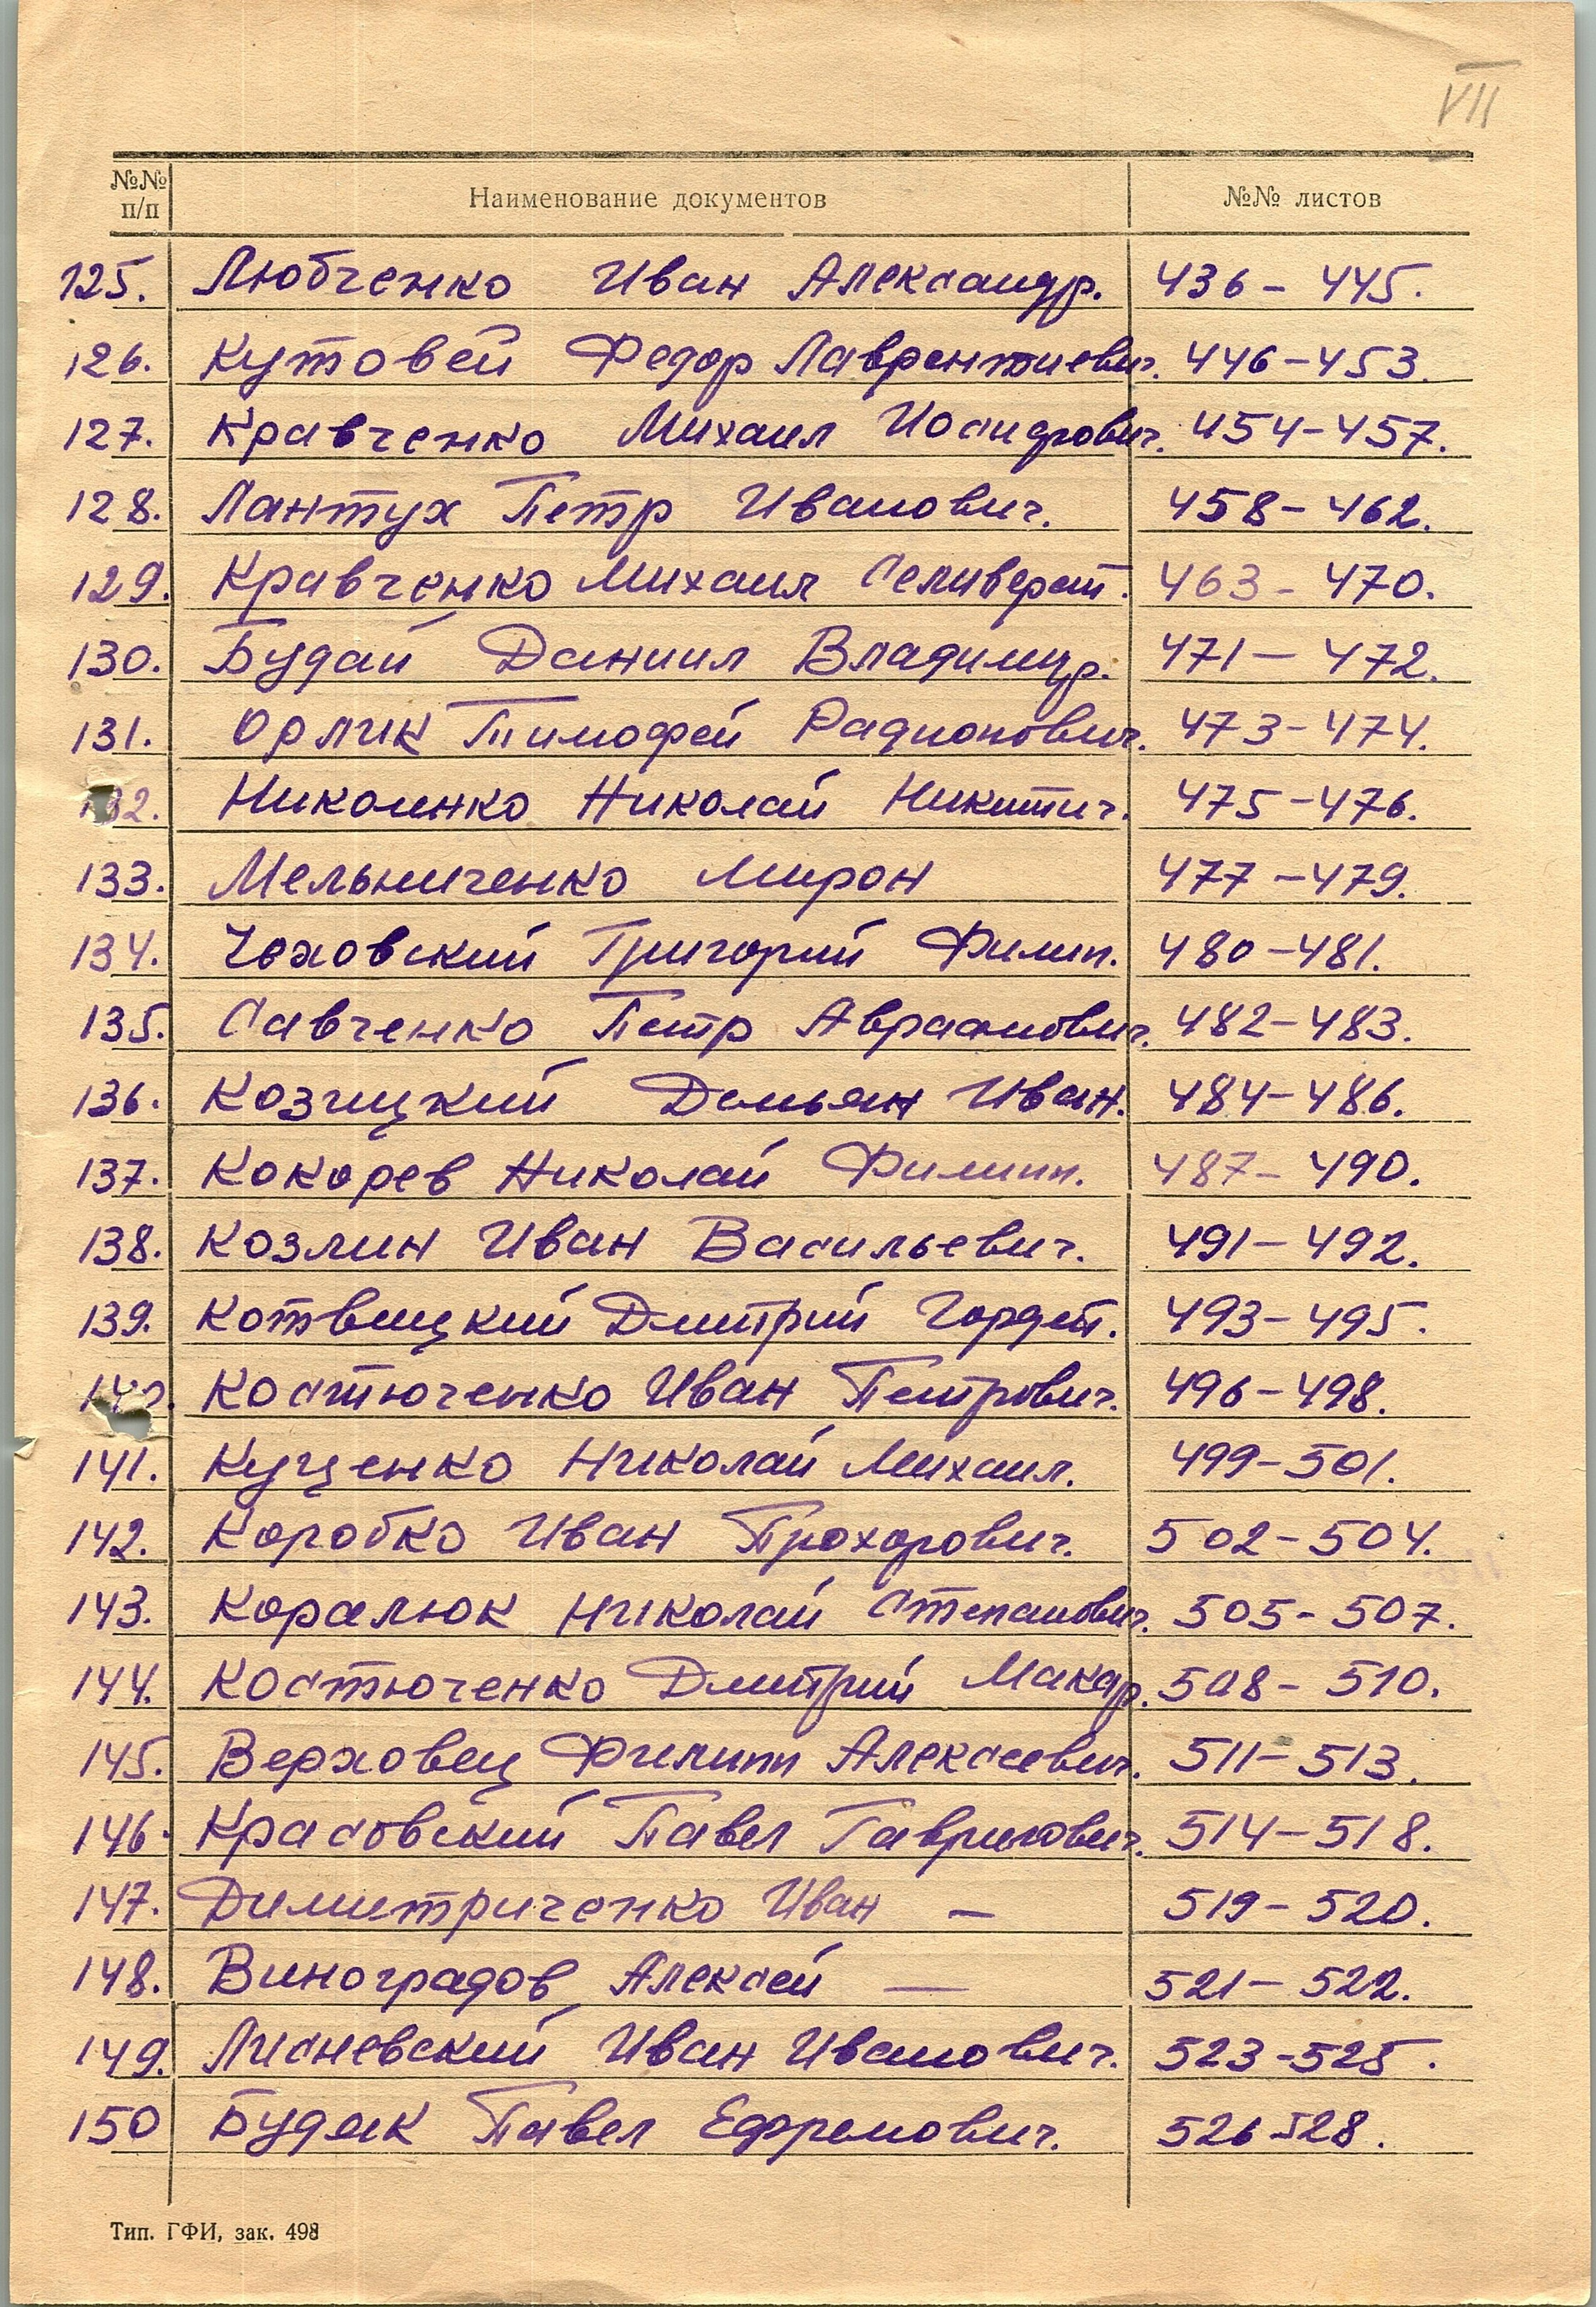 VII
№№ п/п Наименование документов №№ листов
125. Любченко Иван Александр. 436 - 445.
126. Кутовей Федор Лаврентиевич. 446 - 453.
127. Кравченко Михаил Иосифович. 454 - 457.
128. Лантух Петр Иванович. 458 - 462.
129. Кравченко Михаил Селиверст. 463 - 470.
130. Будай Даниил Владимир. 471 - 472.
131. Орлик Тимофей Радионович. 473 - 474.
132. Николенко Николай Никитич. 475 - 476.
133. Мельниченко Мирон 477 - 479.
134. Чеховский Григорий Филип. 480 - 481.
135. Савченко Петр Авраамович. 482 - 483.
136. Козицкий Демьян Иван. 484 - 486.
137. Кокорев Николай Филипп. 487 - 490.
138. Козлин Иван Васильевич. 491 - 492.
139. Котвицкий Дмитрий 493 - 495.
140. Костюченко Иван Петрович. 496 - 498.
141. Куценко Николай Михаил. 499 - 501.
142. Коробко Иван Прохорович. 502 - 504.
143. Коралюк Николай Степанович. 505 - 507.
144. Костюченко Дмитрий Макар. 508 - 510.
145. Верховец Филипп Алексеевич. 511 - 513.
146. Красовский Павел Гаврилович. 514 - 518.
147. Димитриченко Иван — 519 - 520.
148. Виноградов Алексей — 521 - 522.
149. Лисневский Иван Иванович. 523 - 525.
150 Будяк Павел Ефремович. 526 - 528.
Тип. ГФИ, зак. 498